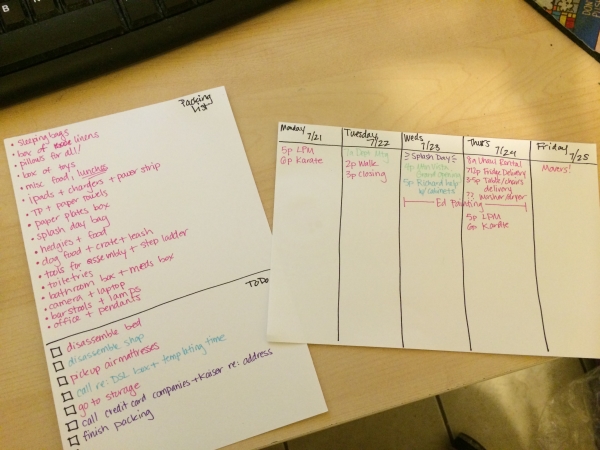 Packing
List
• sleeping bags
• box of linens
• pillows for all!
• box of toys
• misc food / lunches
• ipads + chargers + power strip
• TP + paper towels
• paper plates box
• splash day bag
• hedgies + food
• dog food + crate + leash
• tools for assembly + step ladder
• toiletries
• bathroom box + meds box
• camera + laptop
• barstools + lamps
• office + pendants
ToDo
disassemble bed
disassemble shop
pick up air mattresses
call re: DSL box + templating time
go to storage
call credit card companies + Kaiser re: address
finish packing
Monday
7/21
5p LPM
6p Karate
Tuesday
7/22
2p Walk
3p Closing
Weds
7/23
Splash Day
5p Richard help
w/ cabinets
Ed Painting
Thurs
7/24
Uhaul Rental
Fridge Delivery
3-5p Table/chairs
delivery
?? Washer/dryer
5p LPM
6p Karate
Friday
7/25
Movers!